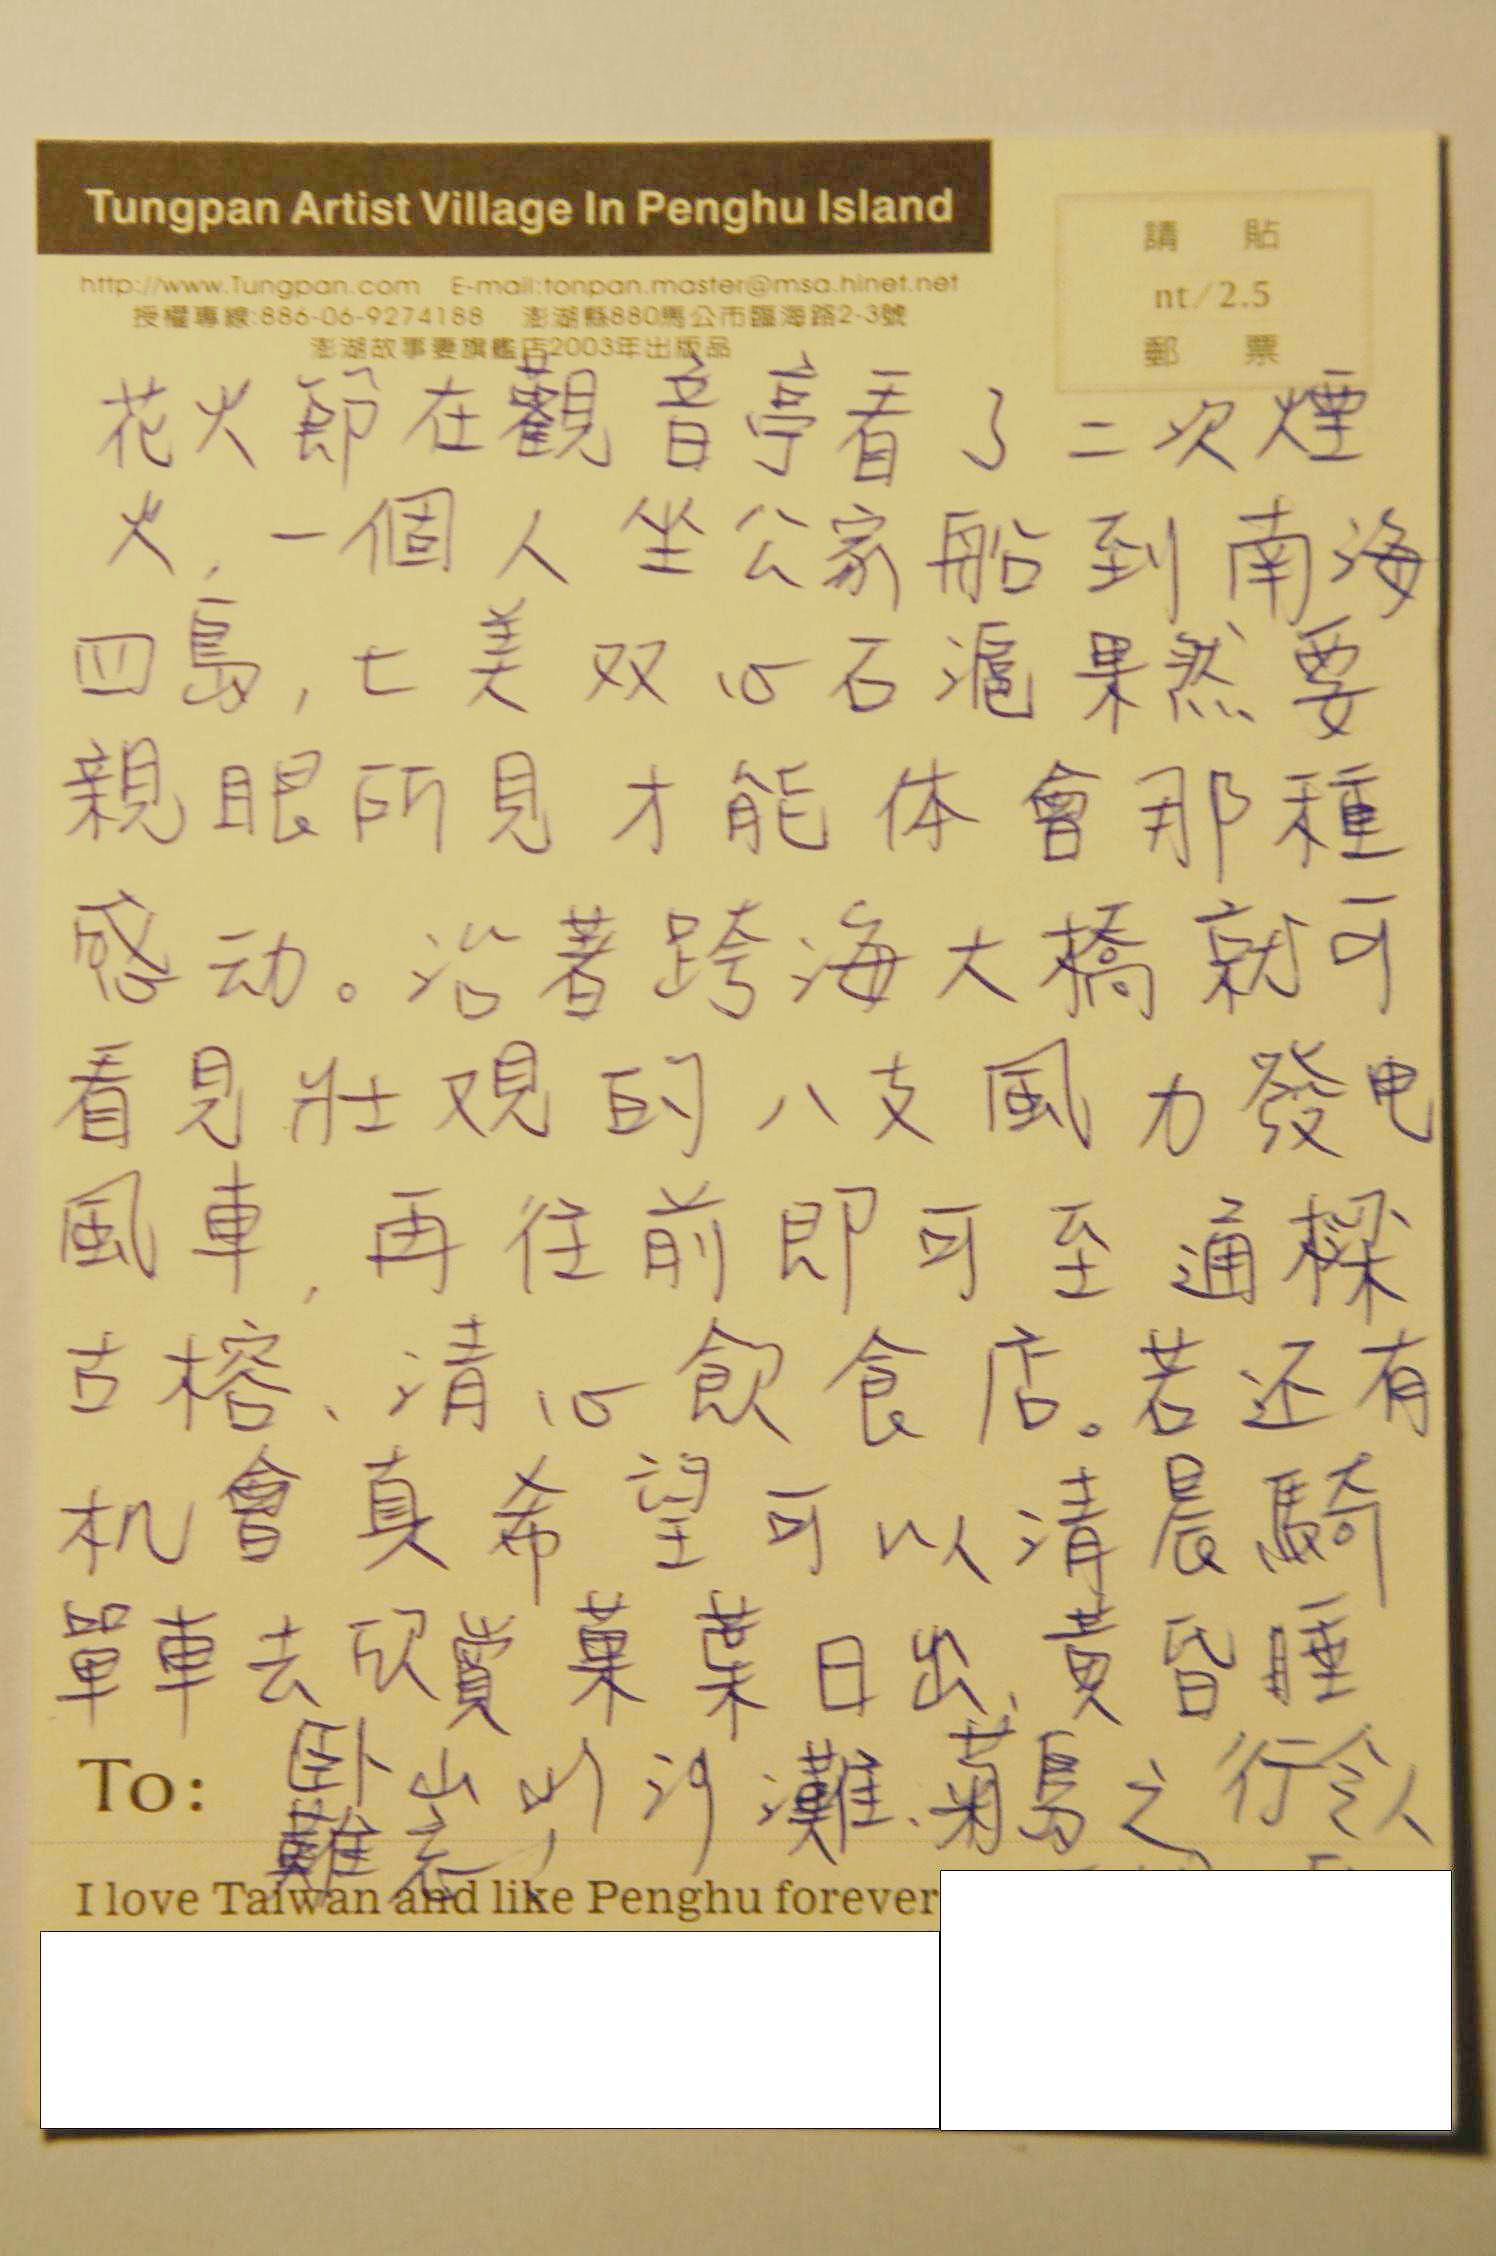 Tungpan Artist Village In Penghu Island
http://www.Tungpan.com E-mail:tonpan.master@msa.hinet.net
授權專線:886-06-9274188 澎湖縣880馬公市臨海路2-3號
澎湖故事妻旗艦店2003年出版品
請 貼
nt/2.5
郵 票
花火節在觀音亭看了二次煙
火,一個人坐公家船到南海
四島,七美双心石滬果然要
親眼所見才能体會那種
感动。沿著跨海大橋就可
看見壯观的八支風力發电
風車,再往前即可至通樑
古榕、清心飲食店。若还有
机會真希望可以清晨騎
單車去欣賞菓葉日出、黃昏睡
To: 卧山水沙灘、菊島之行令人
難忘,
I love Taiwan and like Penghu forever